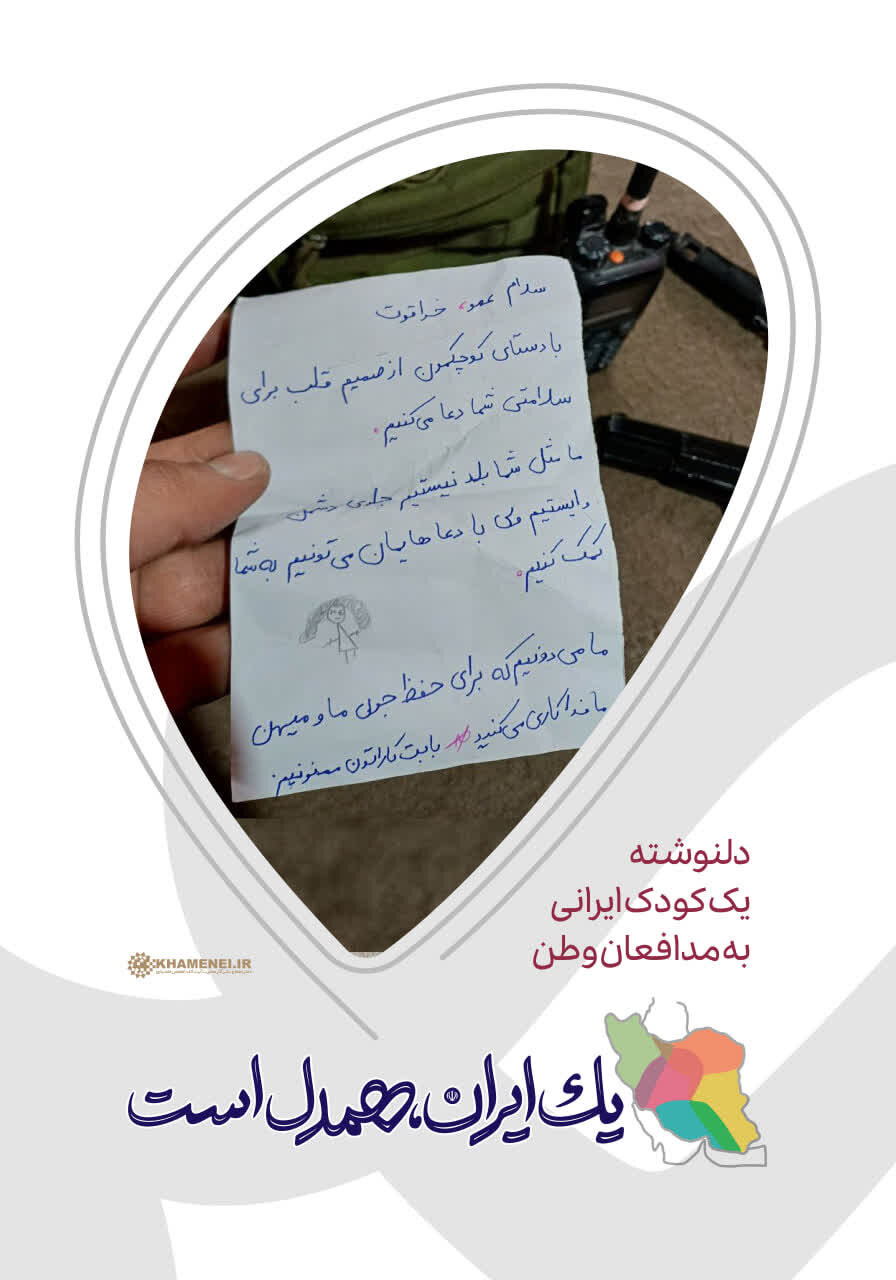 سلام عمو، خداقوت
با دستای کوچکمون از صمیم قلب برای
سلامتی شما دعا می‌کنیم.
ما مثل شما بلد نیستیم جلوی دشمن
وایستیم ولی با دعاهایمان می‌تونیم به شما
کمک کنیم.
ما می‌دونیم که برای حفظ جون ما و میهن
ما فداکاری می‌کنید بابت کاراتون ممنونیم.
دلنوشته
یک کودک ایرانی
به مدافعان وطن
KHAMENEI.IR
یک ایران، همدل است